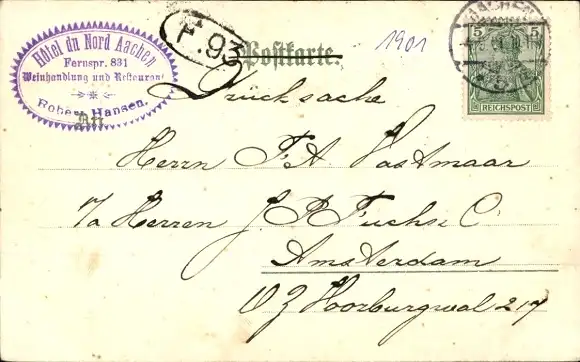 Hôtel du Nord Aachen
Fernspr. 831
Weinhandlung und Restaurant
Robert Hansen.
F. 93
Postkarte.
1901
AACHEN
5 5
REICHSPOST
Drücksache
Herrn F. A. Vastmaar
p/a Herren J. P. Fuchs & C.
Amsterdam
O Z Voorburgwal 217